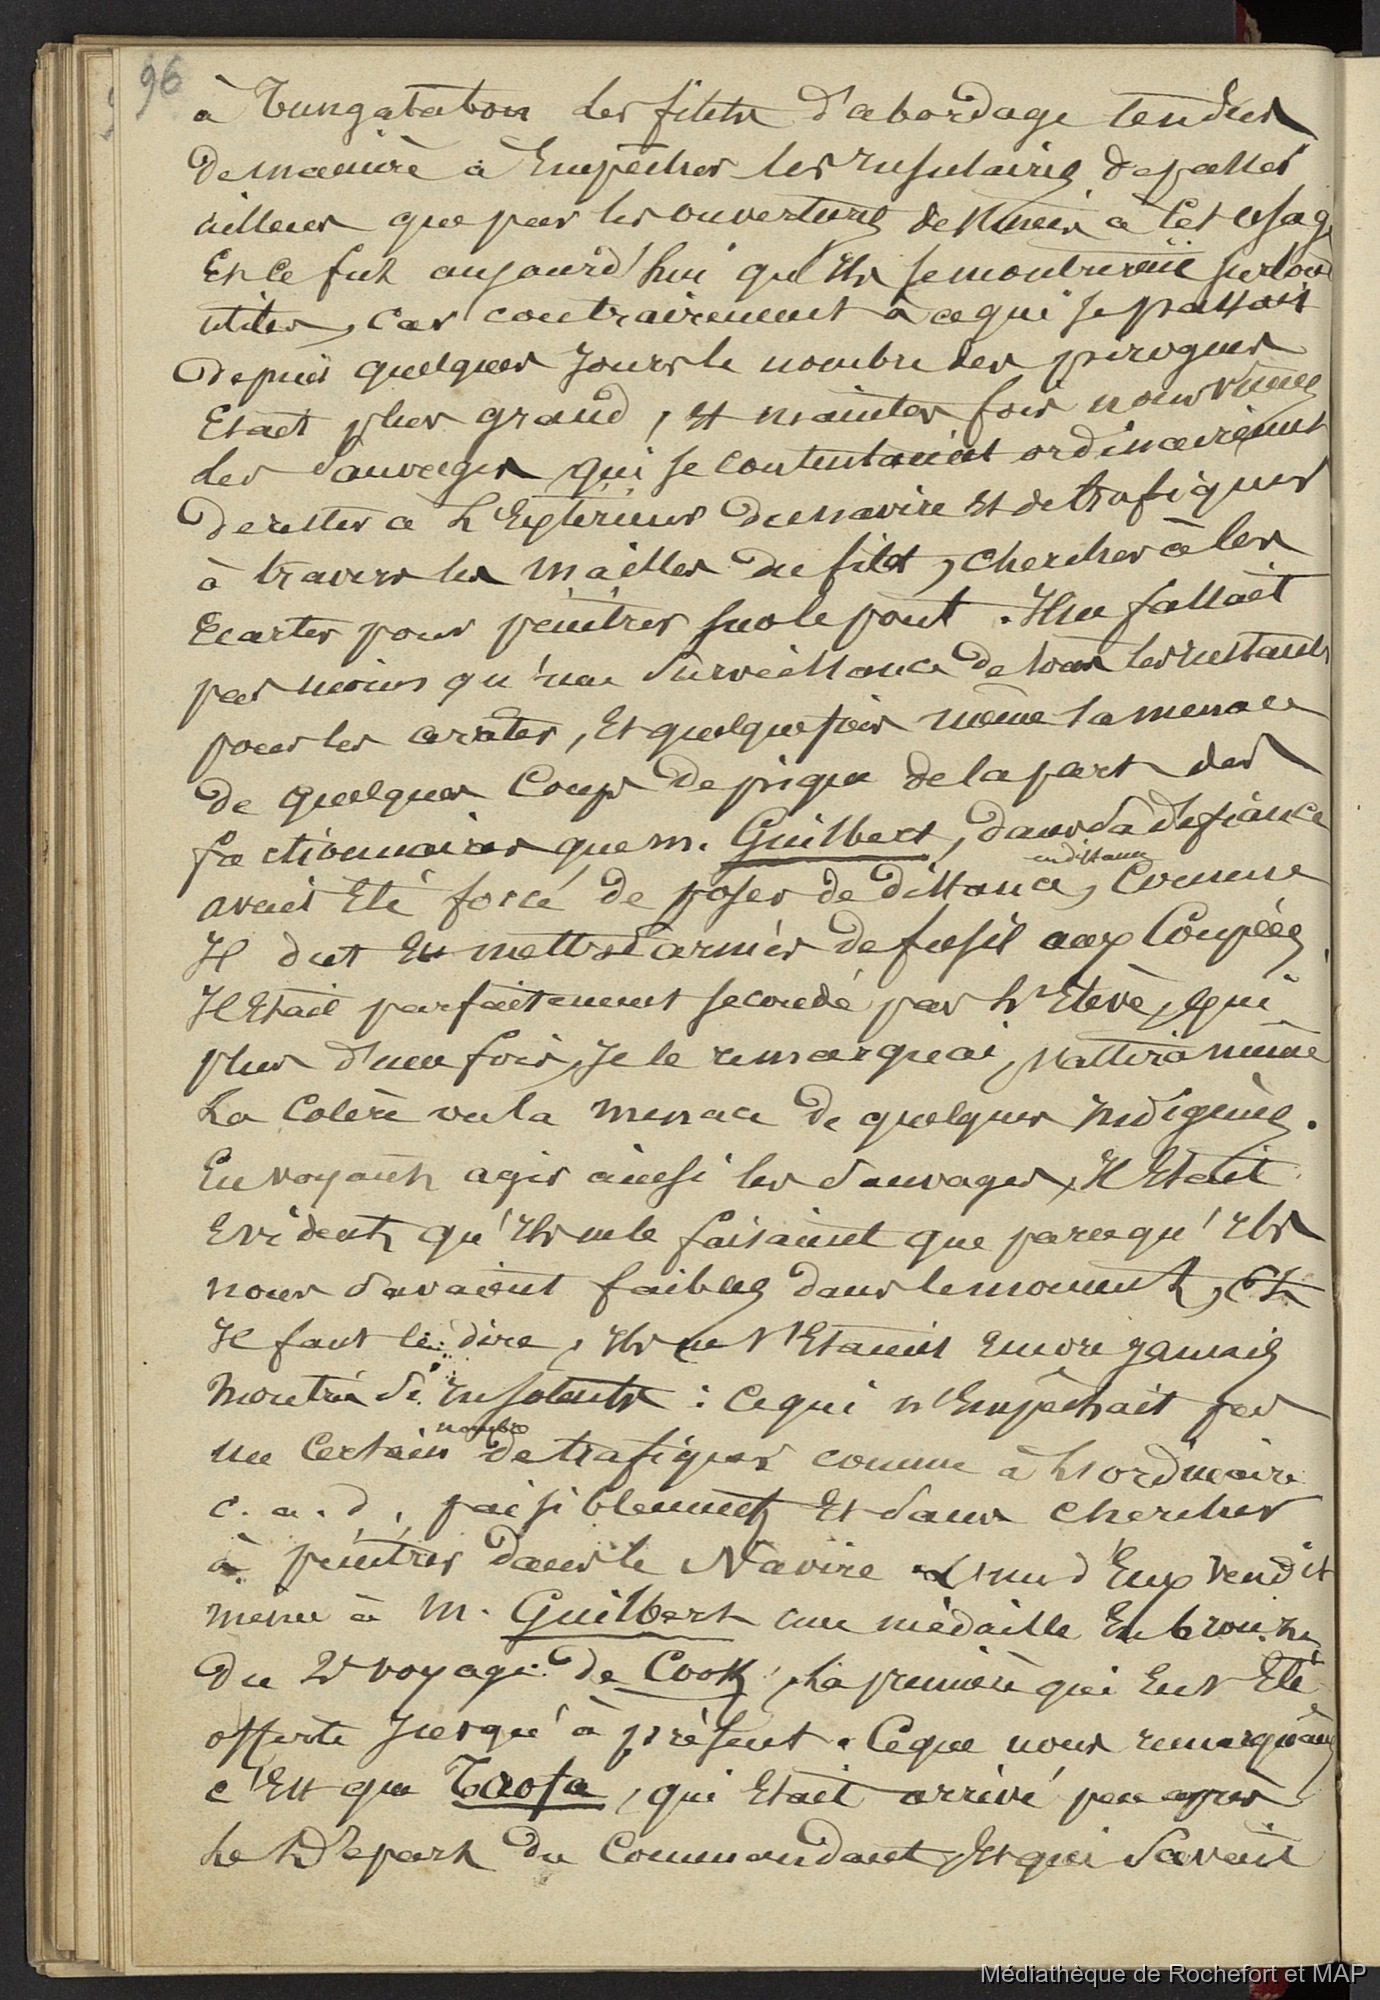 96
à Tungatabou les filets d'abordage tendus
de manière à Empêcher les Insulaires de passer
ailleurs que par les ouvertures destinées à cet usage
Et ce fut aujourd'hui qu'ils se montrèrent surtout
utiles, car contrairement à ce qui se passait
depuis quelques Jours le nombre des pirogues
Etait plus grand, et maintes fois nous vîmes
des Sauvages qui se contentaient ordinairement
de rester à L'Extérieur du navire et de trafiquer
à travers les mailles du filet, chercher à les
Ecarter pour pénétrer sur le pont. Il ne fallait
pas moins qu'une Surveillance de tous les Instants
pour les arrêter, Et quelquefois même la menace
de quelques Coups de pique de la part des
factionnaires que m. Guilbert, dans sa défiance
avait Eté forcé de poser de distance, en distance Comme
Il dut En mettre d'armés de fusil aux Coupées.
Il Etait parfaitement secondé par Lr Elève, qui
plus d'une fois, Je le remarquai, s'attira même
La Colère ou la menace de quelques Indigènes.
En voyant agir ainsi les Sauvages, Il Etait
Evident qu'Ils ne le faisaient que parce qu'Ils
nous Savaient faibles dans le moment, Et
Il faut le dire, Ils ne s'Etaient Encore jamais
montrés si Insolents : Ce qui n'Empêchait pas
un Certain nombre de trafiquer comme à L'ordinaire
c. a. d. paisiblement Et Sans chercher
à pénétrer dans le Navire. L'un d'Eux vendit
même à M. Guilbert une médaille En bronze
du 2e voyage de Cook, La première qui Eut Eté
offerte Jusqu'à présent. Ce que nous remarquâmes
c'Est que Taofa, qui Etait arrivé peu après
Le Départ du Commandant, Et qui Savait
Médiathèque de Rochefort et MAP